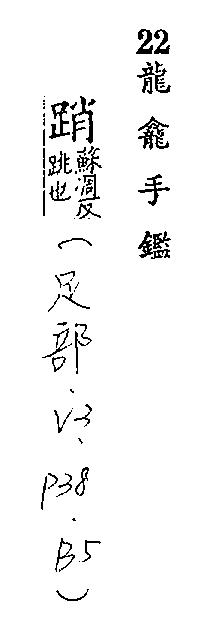 22龍龕手鑑
踃蘇凋反跳也(足部.V3.P38.B5)